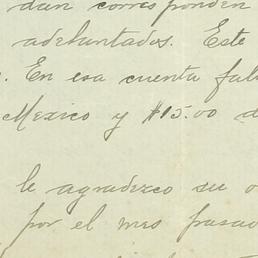 dan corresponden
adelantados. Este
. En esa cuenta fal
Mexico y $15.00 d
le agradezco su o
por el mes pasad